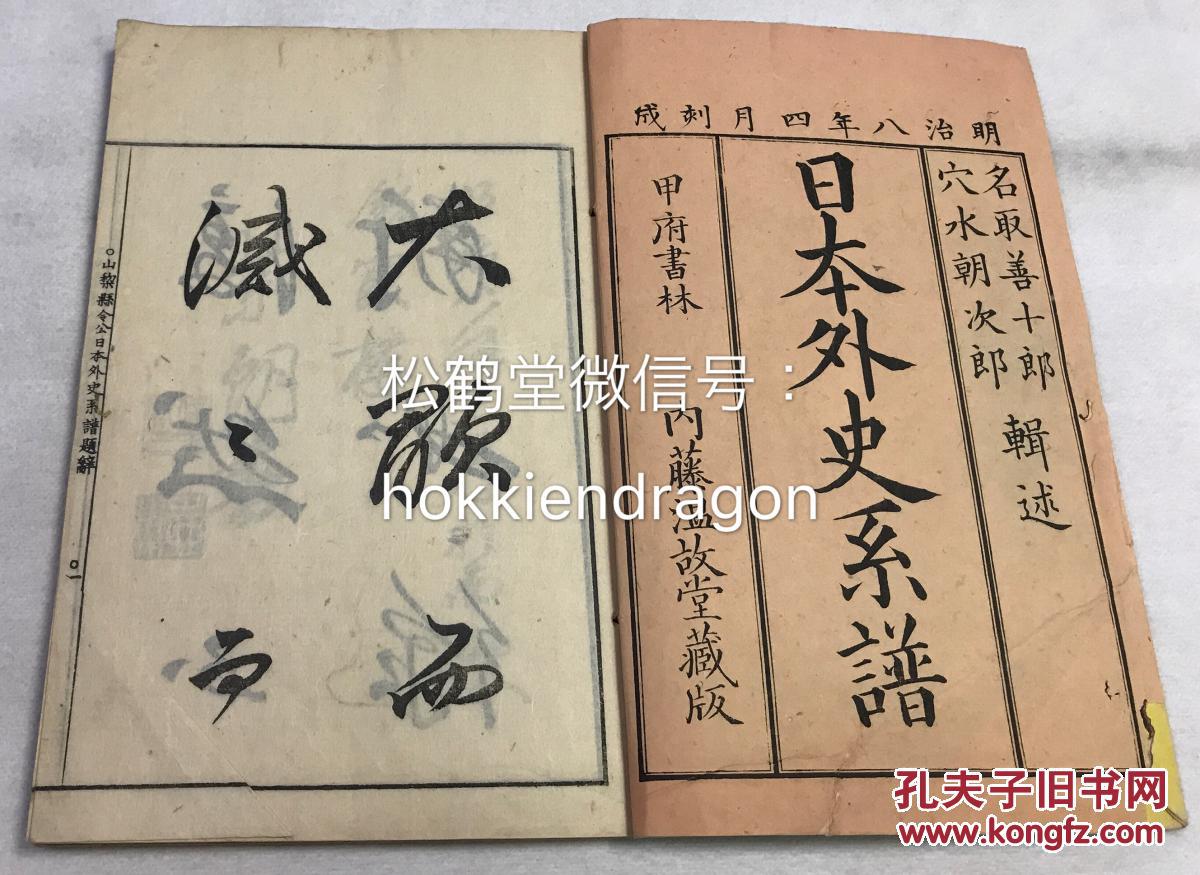 明治八年四月刻成
名取善十郎
穴水朝次郎
輯述
日本外史系譜
甲府書林 内藤温故堂藏版
大
而
滅
山梨縣令公日本外史系譜題辭
一
松鹤堂微信号：
hokkiendragon
孔夫子旧书网
www.kongfz.com